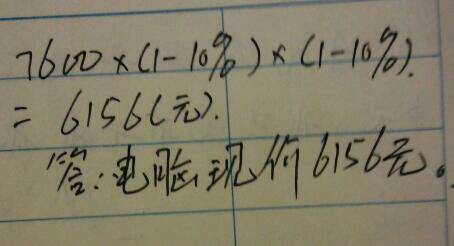 7600×(1-10%)×(1-10%).
=6156(元).
答:电脑现价6156元。